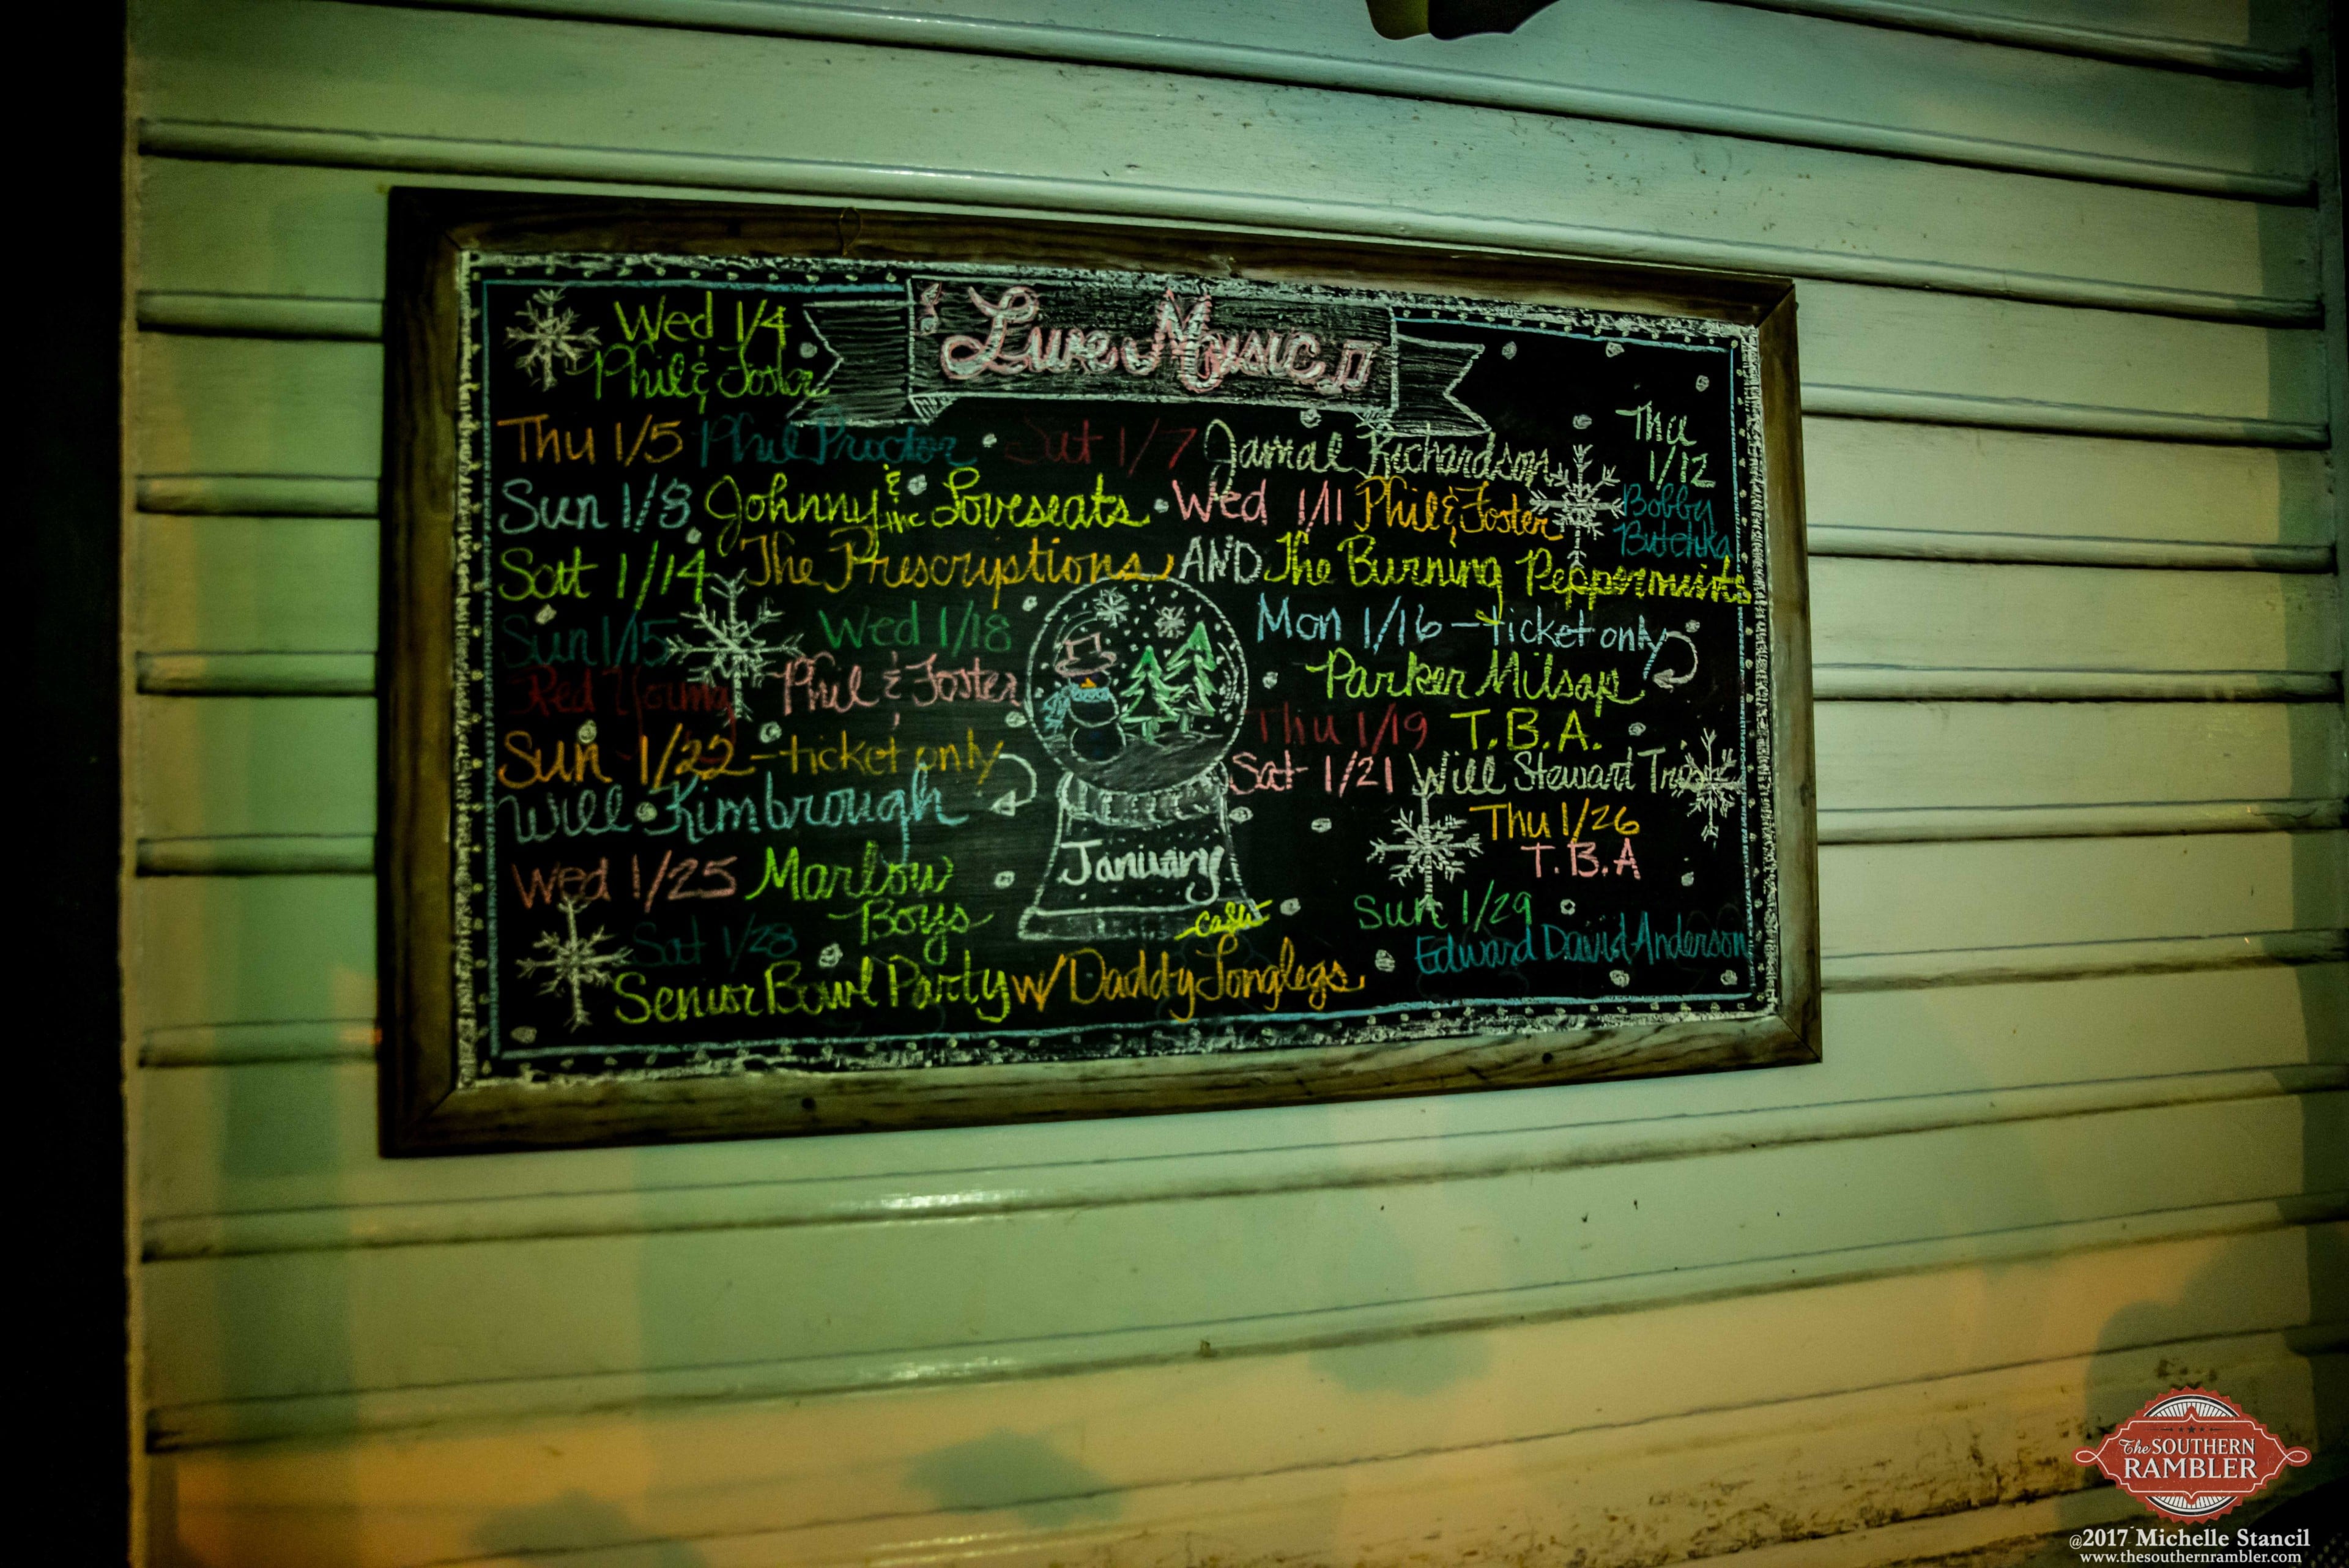 Live Music
Wed 1/4
Phil & Foster
Thu 1/5 Phil Proctor • Sat 1/7 Jamal Richardson
Thu
1/12
Bobby
Butchka
Sun 1/8 Johnny & the Loveseats • Wed 1/11 Phil & Foster
Sat 1/14 The Prescriptions AND The Burning Peppermints
Sun 1/15
Red Young
Wed 1/18
Phil & Foster
Mon 1/16 - ticket only
Parker Milsap
Thu 1/19 T.B.A.
Sun 1/22 - ticket only
Will Kimbrough
Sat 1/21 Will Stewart Trio
Thu 1/26
T.B.A
Wed 1/25 Marlow
Boys
January
Sun 1/29
Edward David Anderson
Sat 1/28
Senior Bowl Party w/ Daddy Longlegs
The SOUTHERN
RAMBLER
@2017 Michelle Stancil
www.thesouthernrambler.com